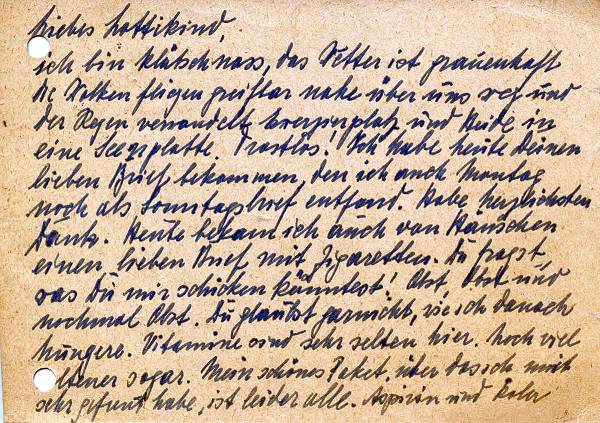 Liebes Lottikind,
ich bin klätschnass, das Wetter ist grauenhaft
Die Wolken fliegen greifbar nahe über uns weg und
der Regen verwandelt Exerzierplatz und Heide in
eine Seenplatte. Trostlos! Ich habe heute Deinen
lieben Brief bekommen, den ich auch Montag
noch als Sonntagsbrief entfand. Habe herzlichsten
Dank. Heute bekam ich auch von Hänschen
einen lieben Brief mit Zigaretten. Du fragst,
was Du mir schicken könntest! Obst, Obst und
nochmal Obst. Du glaubst garnicht, wie ich danach
hungere. Vitamine sind sehr selten hier. Noch viel
seltener sogar. Mein schönes Paket, über das ich mich
sehr gefreut habe, ist leider alle. Aspirin und